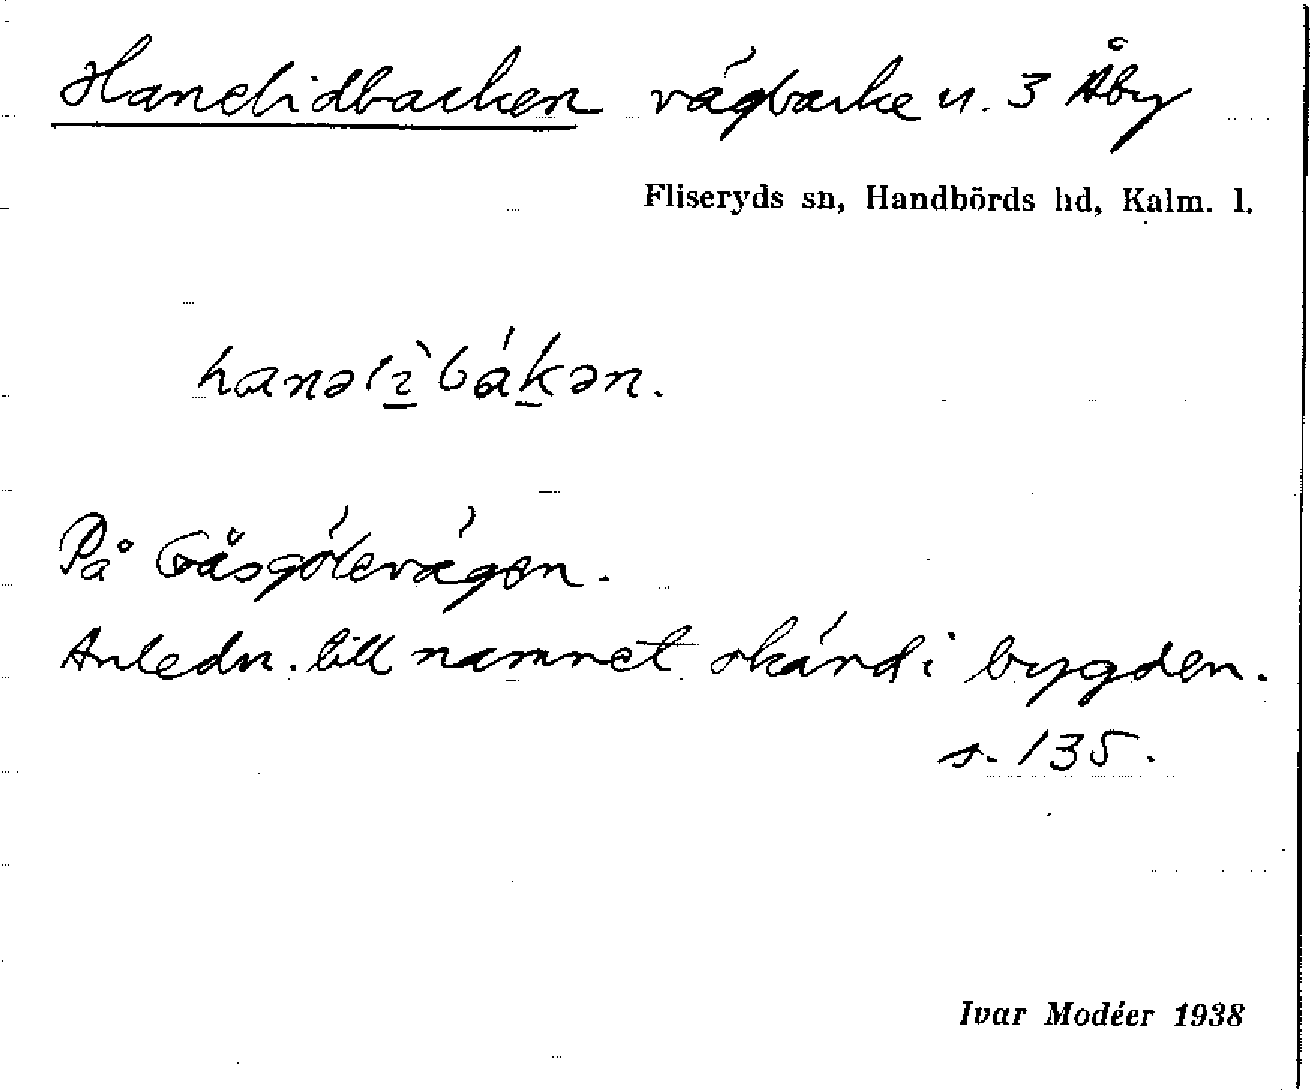 Hanelidbacken vägbacke n. 3 Åby
Fliseryds sn, Handbörds hd, Kalm. l.
hanəlìbákən.
På Gåsgölevägen.
Anledn. till namnet okänd i bygden.
s. 135.
Ivar Modéer 1938